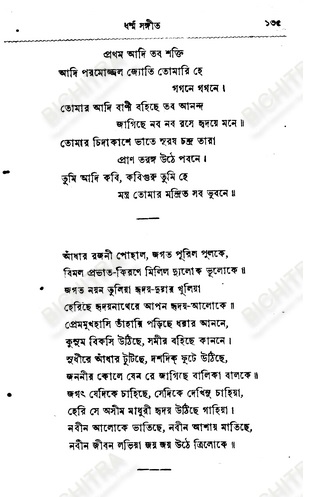 ধর্ম্ম সঙ্গীত ১৩৫
প্রথম আদি তব শক্তি
আদি পরমোজ্জ্বল জ্যোতি তোমারি হে
গগনে গগনে।
তোমার আদি বাণী বহিছে তব আনন্দ
জাগিছে নব নব রসে হৃদয়ে মনে॥
তোমার চিদাকাশে ভাতে সূরয চন্দ্র তারা
প্রাণ তরঙ্গ উঠে পবনে।
তুমি আদি কবি, কবিগুরু তুমি হে
মন্ত্র তোমার মন্দ্রিত সব ভুবনে॥
আঁধার রজনী পোহাল, জগত পূরিল পুলকে,
বিমল প্রভাত-কিরণে মিলিল দ্যুলোক ভূলোকে॥
জগত নয়ন তুলিয়া হৃদয়-দুয়ার খুলিয়া
হেরিছে হৃদয়নাথেরে আপন হৃদয়-আলোকে॥
প্রেমমুখহাসি তাঁহারি পড়িছে ধরার আননে,
কুসুম বিকসি উঠিছে, সমীর বহিছে কাননে।
সুধীরে আঁধার টুটিছে, দশদিক্ ফুটে উঠিছে,
জননীর কোলে যেন রে জাগিছে বালিকা বালকে॥
জগৎ যেদিকে চাহিছে, সেদিকে দেখিনু চাহিয়া,
হেরি সে অসীম মাধুরী হৃদয় উঠিছে গাহিয়া।
নবীন আলোকে ভাতিছে, নবীন আশায় মাতিছে,
নবীন জীবন লভিয়া জয় জয় উঠে ত্রিলোকে॥
BICHITRA
BICHITRA
BICHITRA
BICHITRA